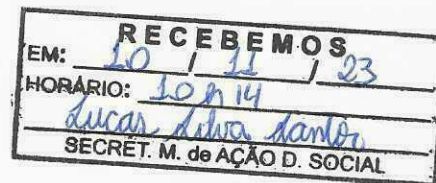 RECEBEMOS
EM: 10 / 11 / 23
HORÁRIO: 10 h 14
Lucas Silva Santos
SECRET. M. de AÇÃO D. SOCIAL